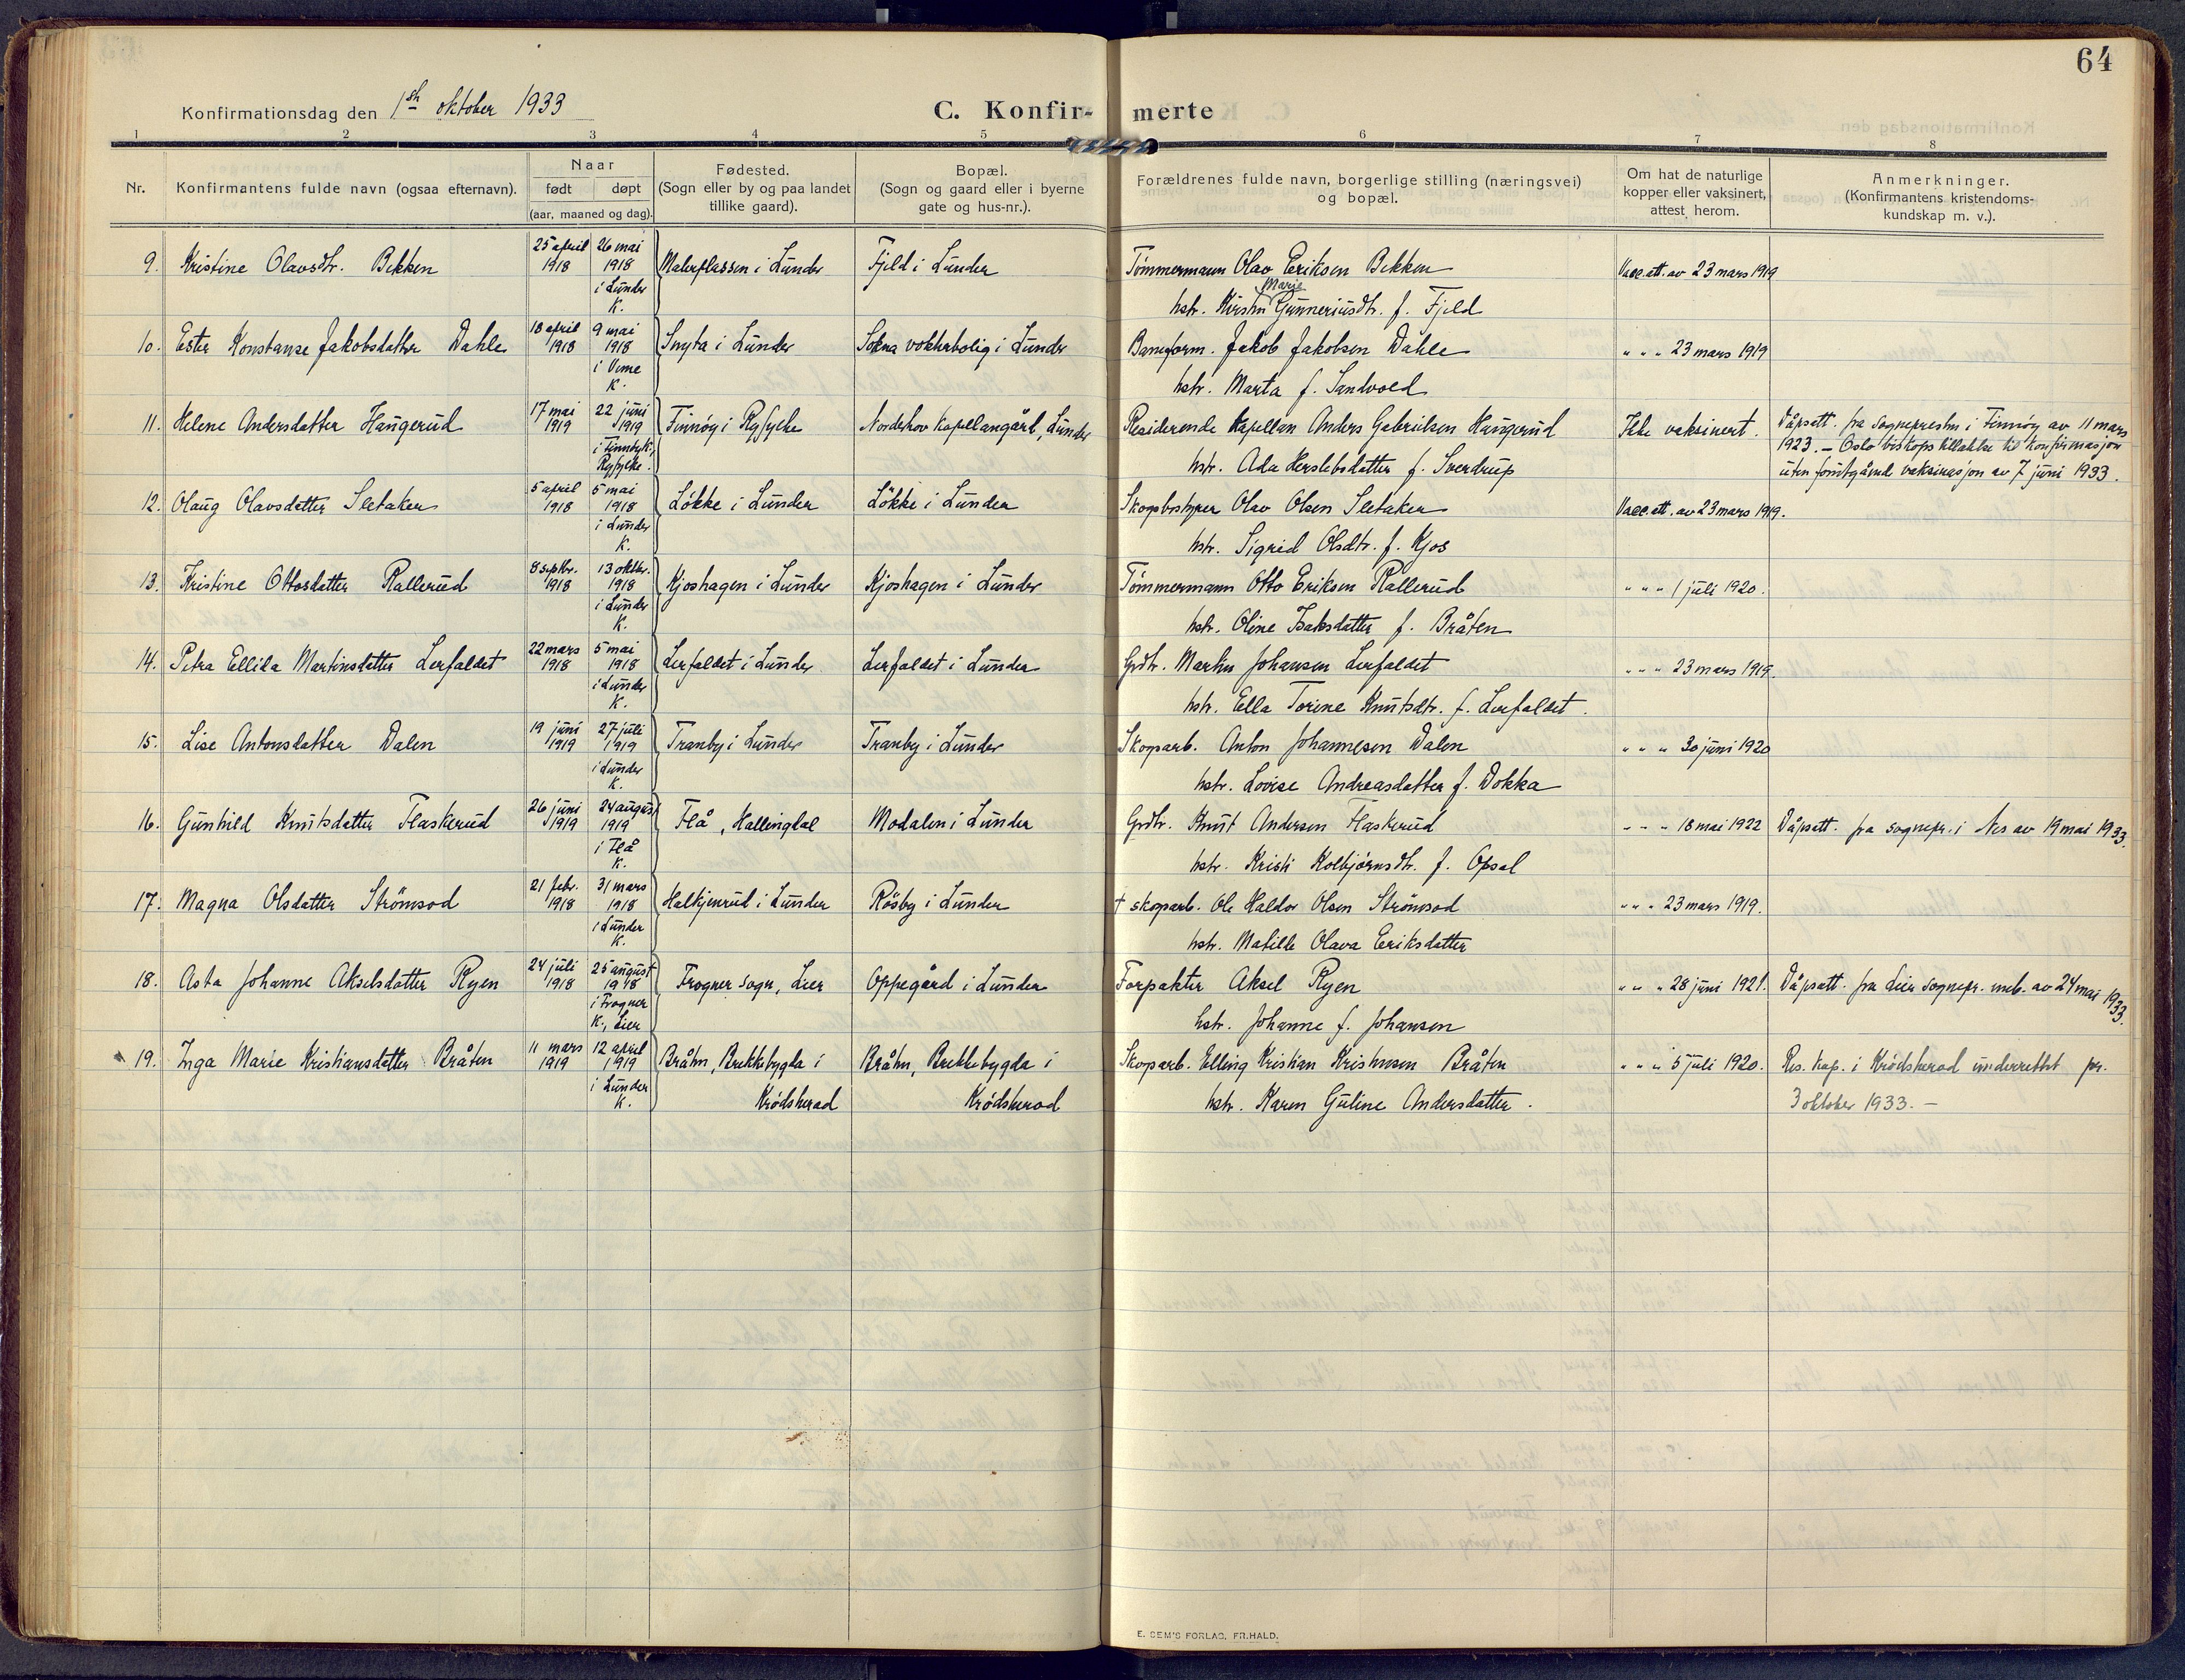 64
Konfirmationsdag den 1ste oktober 1933
C. Konfir- merte
1 2 3 4 5 6 7 8
Nr.
Konfirmantens fulde navn (ogsaa efternavn).
Naar
født døpt
(aar, maaned og dag).
Fødested.
(Sogn eller by og paa landet
tillike gaard).
Bopæl.
(Sogn og gaard eller i byerne
gate og hus-nr.).
Forældrenes fulde navn, borgerlige stilling (næringsvei)
og bopæl.
Om hat de naturlige
kopper eller vaksinert,
attest herom.
Anmerkninger.
(Konfirmantens kristendoms-
kundskap m. v.).
25 april 26 mai
9. Kristine Olavsdtr. Bekken 1918 1918 i Lunder Fjeld i Lunder Tømmermann Olav Eriksen Bekken Vacc. att. av 23 mars 1919
i Lunder Marie
K. hstr. Kirstin Gunneriusdtr. f. Fjeld
18 april 9 mai
10. Ester Konstanse Jakobsdatter Dahle 1918 1918 Snyta i Lunder Sokna vokterbolig i Lunder Baneform. Jakob Jakobsen Dahle " " " 23 mars 1919
i Veme
K. hstr. Marta f. Sandvold
17 mai 22 juni
11. Helene Andersdatter Haugerud 1919 1919 Finnøy i Ryfylke Norderhov kapellangård, Lunder Residerende kapellan Anders Gabrielsen Haugerud Ikke vaksinert. Dåpsatt. fra sognepresten i Finnøy av 11 mars
i Finnøy K., 1923. – Oslo biskops tillatelse til konfirmasjon
Ryfylke. hstr. Ada Herslebsdatter f. Sverdrup uten forutgående vaksinasjon av 7 juni 1933.
5 april 5 mai
12. Olaug Olavsdatter Sletaker 1918 1918 Løkke i Lunder Løkke i Lunder Skogbestyrer Olav Olsen Sletaker Vacc. att. av 23 mars 1919.
i Lunder
K. hstr. Sigrid Olsdtr. f. Kjos
8 septbr. 13 oktbr.
13. Kristine Ottosdatter Rallerud 1918 1918 Kjoshagen i Lunder Kjoshagen i Lunder Tømmermann Otto Eriksen Rallerud " " " 1 juli 1920.
i Lunder
K. hstr. Oline Isaksdatter f. Bråten
22 mars 5 mai
14. Petra Ellida Martinsdatter Lerfaldet 1918 1918 Lerfaldet i Lunder Lerfaldet i Lunder Grdbr. Martin Johansen Lerfaldet " " " 23 mars 1919.
i Lunder
K. hstr. Ella Torine Knutsdtr. f. Lerfaldet.
19 juni 27 juli
15. Lise Antonsdatter Dalen 1919 1919 Tranby i Lunder Tranby i Lunder Skogsarb. Anton Johannesen Dalen " " " 30 juni 1920
i Lunder
K. hstr. Lovise Andreasdatter f. Dokka
26 juni 24 august
16. Gunhild Knutsdatter Flaskerud 1919 1919 Flå, Hallingdal Modalen i Lunder Grdbr. Knut Andersen Flaskerud " " " 18 mai 1922 Dåpsatt. fra sognepr. i Nes av 19 mai 1933.
i Flå
K. hstr. Kristi Kolbjørnsdtr. f. Opsal
21 febr. 31 mars
17. Magna Olsdatter Strømsod 1918 1918 Halkjenrud i Lunder Røsby i Lunder † skogsarb. Ole Haldor Olsen Strømsod " " " 23 mars 1919.
i Lunder
K. hstr. Matilde Olava Eriksdatter
24 juli 25 august
18. Asta Johanne Akselsdatter Ryen 1918 1918 Frogner sogn, Lier Oppegård i Lunder Forpakter Aksel Ryen " " " 28 juni 1921. Dåpsatt. fra Lier sognepr. emb. av 24 mai 1933.
i Frogner
K., Lier hstr. Johanne f. Johansen
11 mars 12 april
19. Inga Marie Kristiansdatter Bråten 1919 1919 Bråten, Bekkebygda i Bråten, Bekkebygda i Skogsarb. Elling Kristian Kristensen Bråten " " " 5 juli 1920. Res. kap. i Krødsherad underrettet pr.
i Lunder
K. Krødsherad Krødsherad hstr. Karen Guline Andersdatter. 3 oktober 1933. –
E. SEM'S FORLAG, FR.HALD.